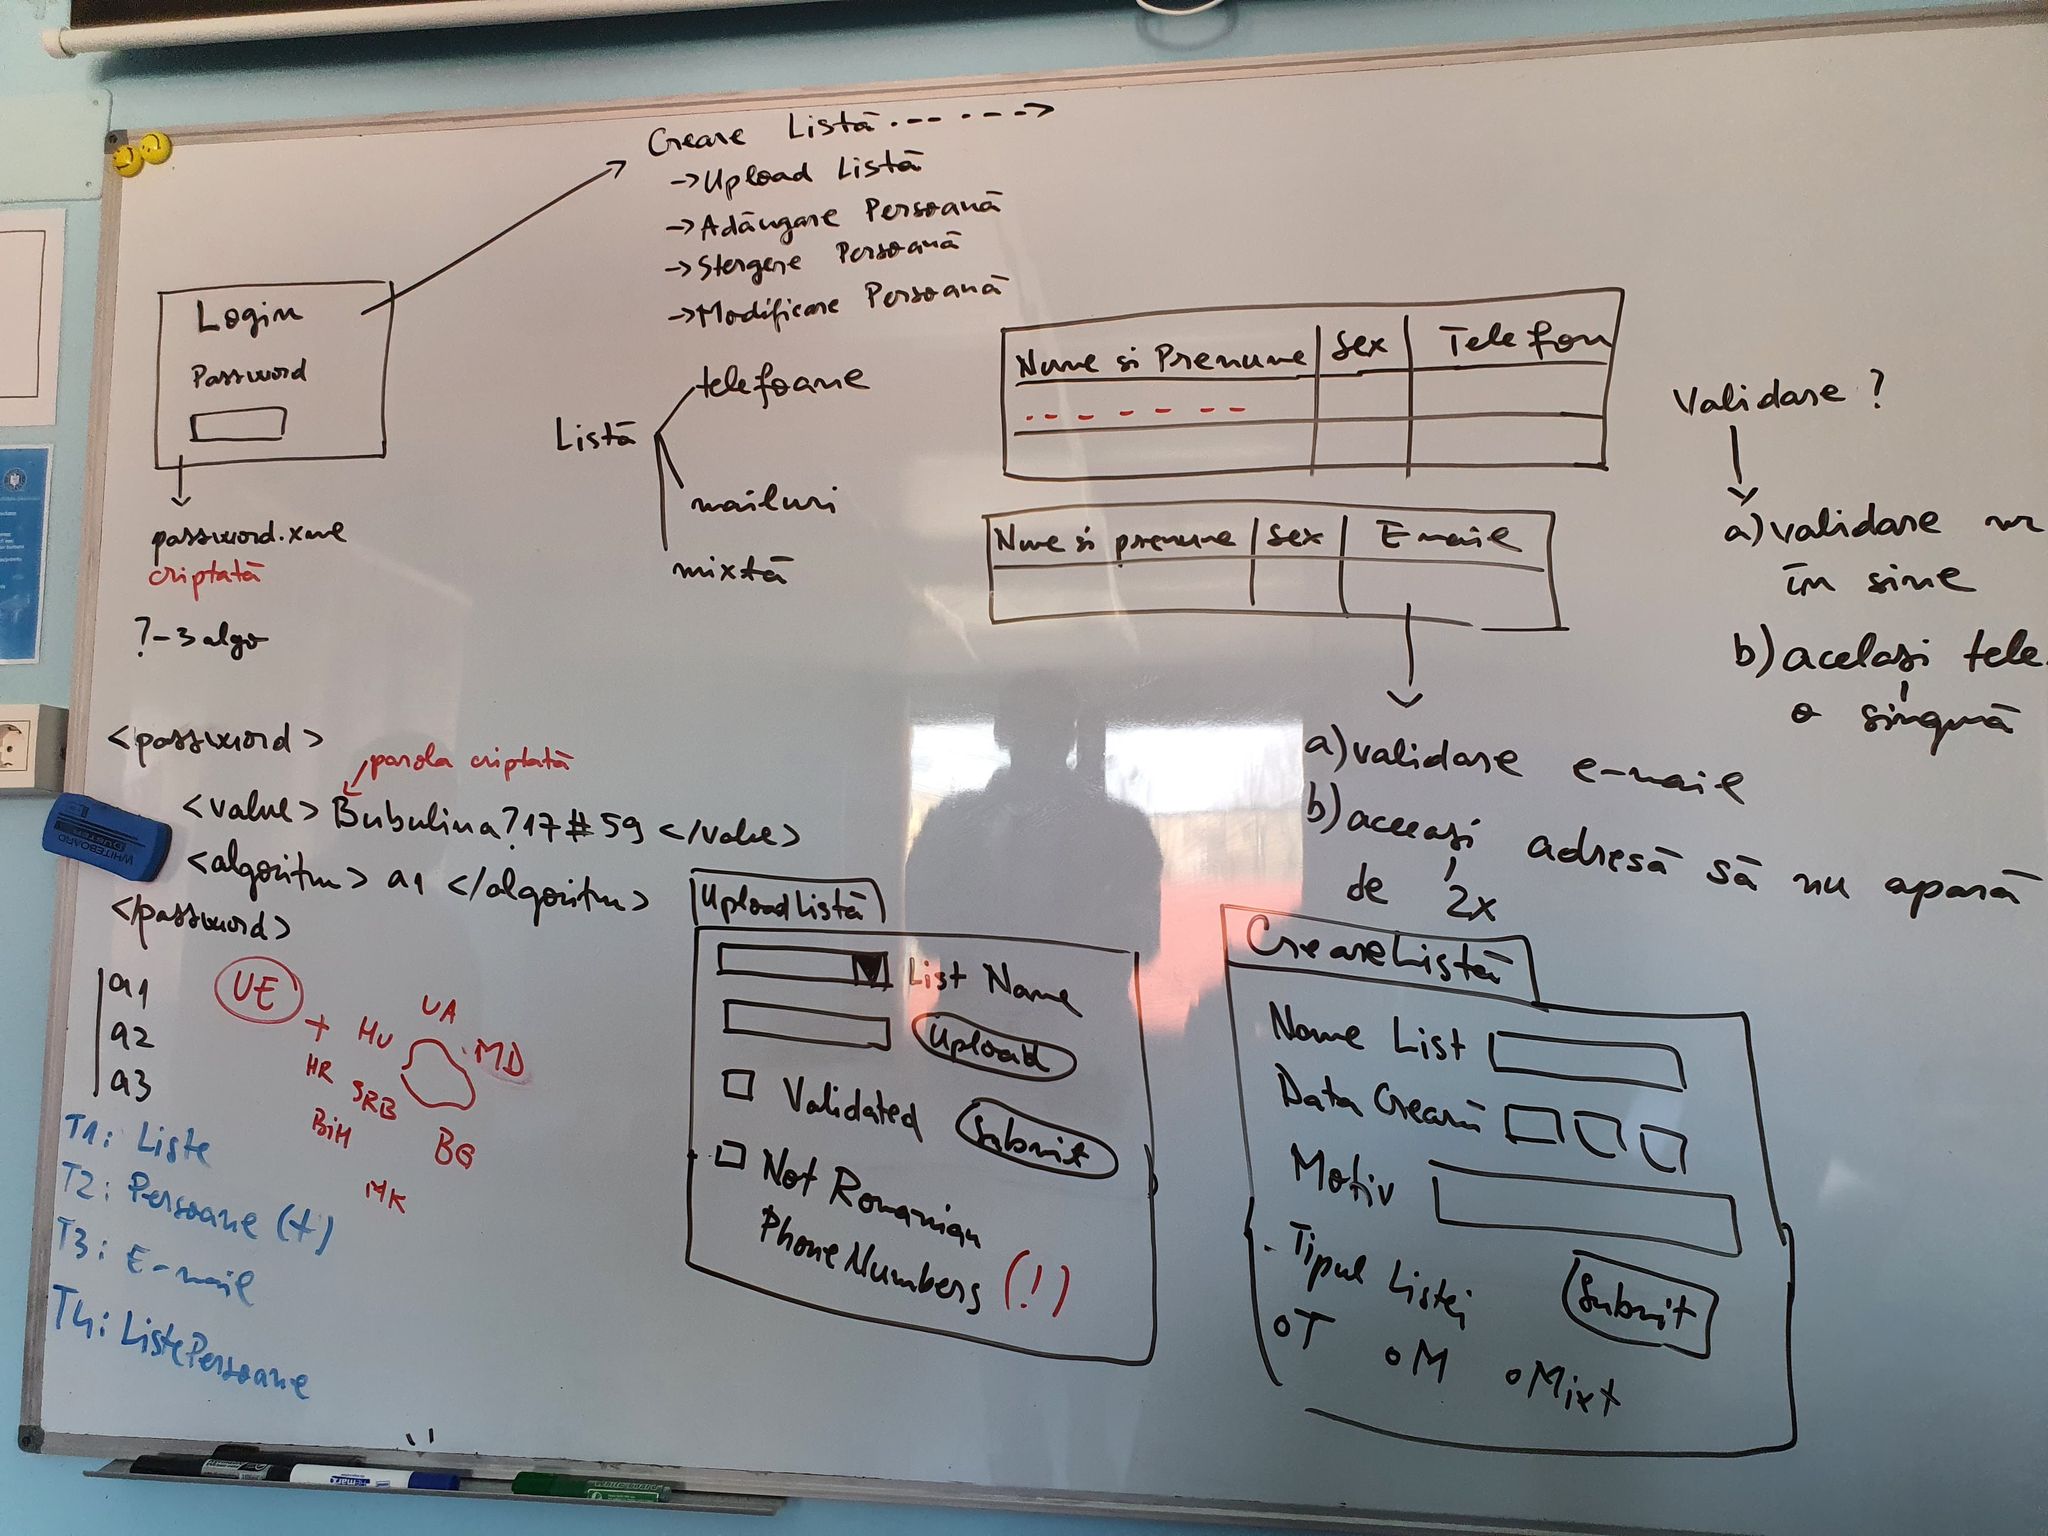 Creare Listă
→ Upload Listă
→ Adăugare Persoană
→ Stergere Persoană
→ Modificare Persoană
Login
Password
password.xml
criptată
?-3 algo
Listă
telefoane
mailuri
mixtă
Nume si Prenume | Sex | Telefon
Nume si prenume | Sex | E-mail
Validare ?
a) validare nr
în sine
b) același tele.
o singură
a) validare e-mail
b) aceeași adresă să nu apară
de 2x
<password>
parola criptată
<value> Bubulina?17#59 </value>
<algoritm> a1 </algoritm>
</password>
a1
a2
a3
UE
+
HU
UA
MD
HR
SRB
BiH
BG
MK
T1: Liste
T2: Persoane (t)
T3: E-mail
T4: ListePersoane
Upload Listă
List Name
Upload
Validated
Submit
Not Romanian
Phone Numbers (!)
Creare Listă
Name List
Data Creării
Motiv
Tipul Listei
Submit
o T o M o Mixt
WHITEBOARD